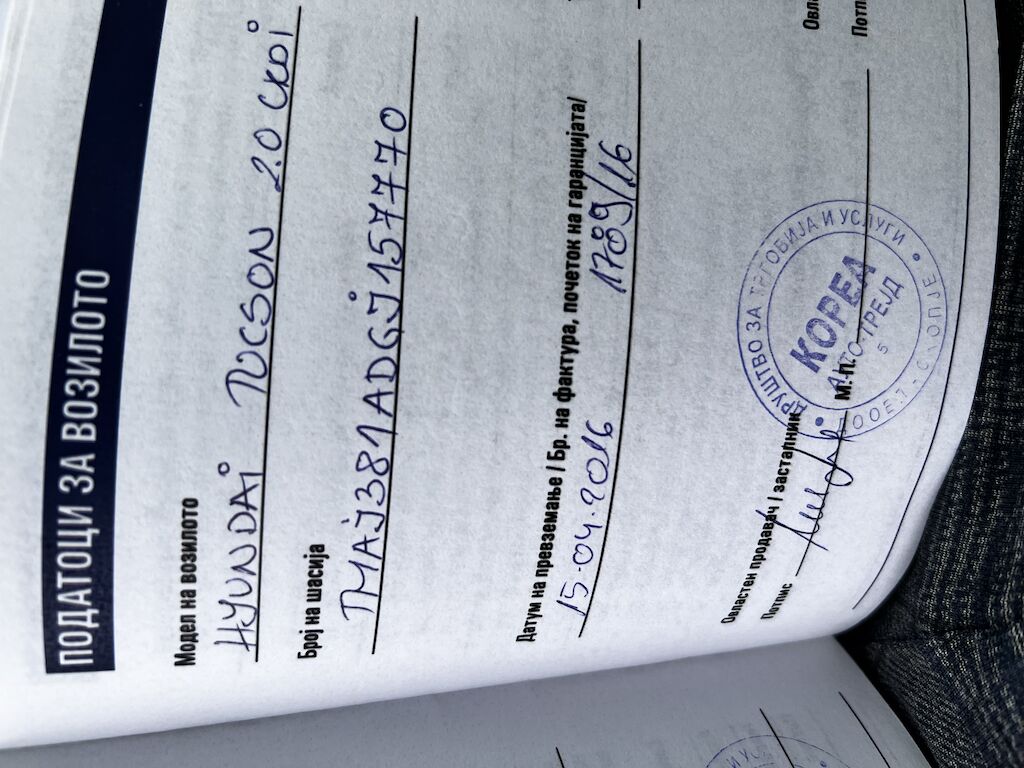 ПОДАТОЦИ ЗА ВОЗИЛОТО
Модел на возилото
HYUNDAi TUCSON 2.0 CRDi
Број на шасија
TMAJ381ADGJ157770
Датум на превземање / Бр. на фактура, почеток на гаранцијата/
15.04.2016 1789/16
Овластен продавач / застапник
Потпис
М. П.
ДРУШТВО ЗА ТРГОВИЈА И УСЛУГИ
КОРЕА
АВТО-ТРЕЈД
5
ДООЕЛ - СКОПЈЕ